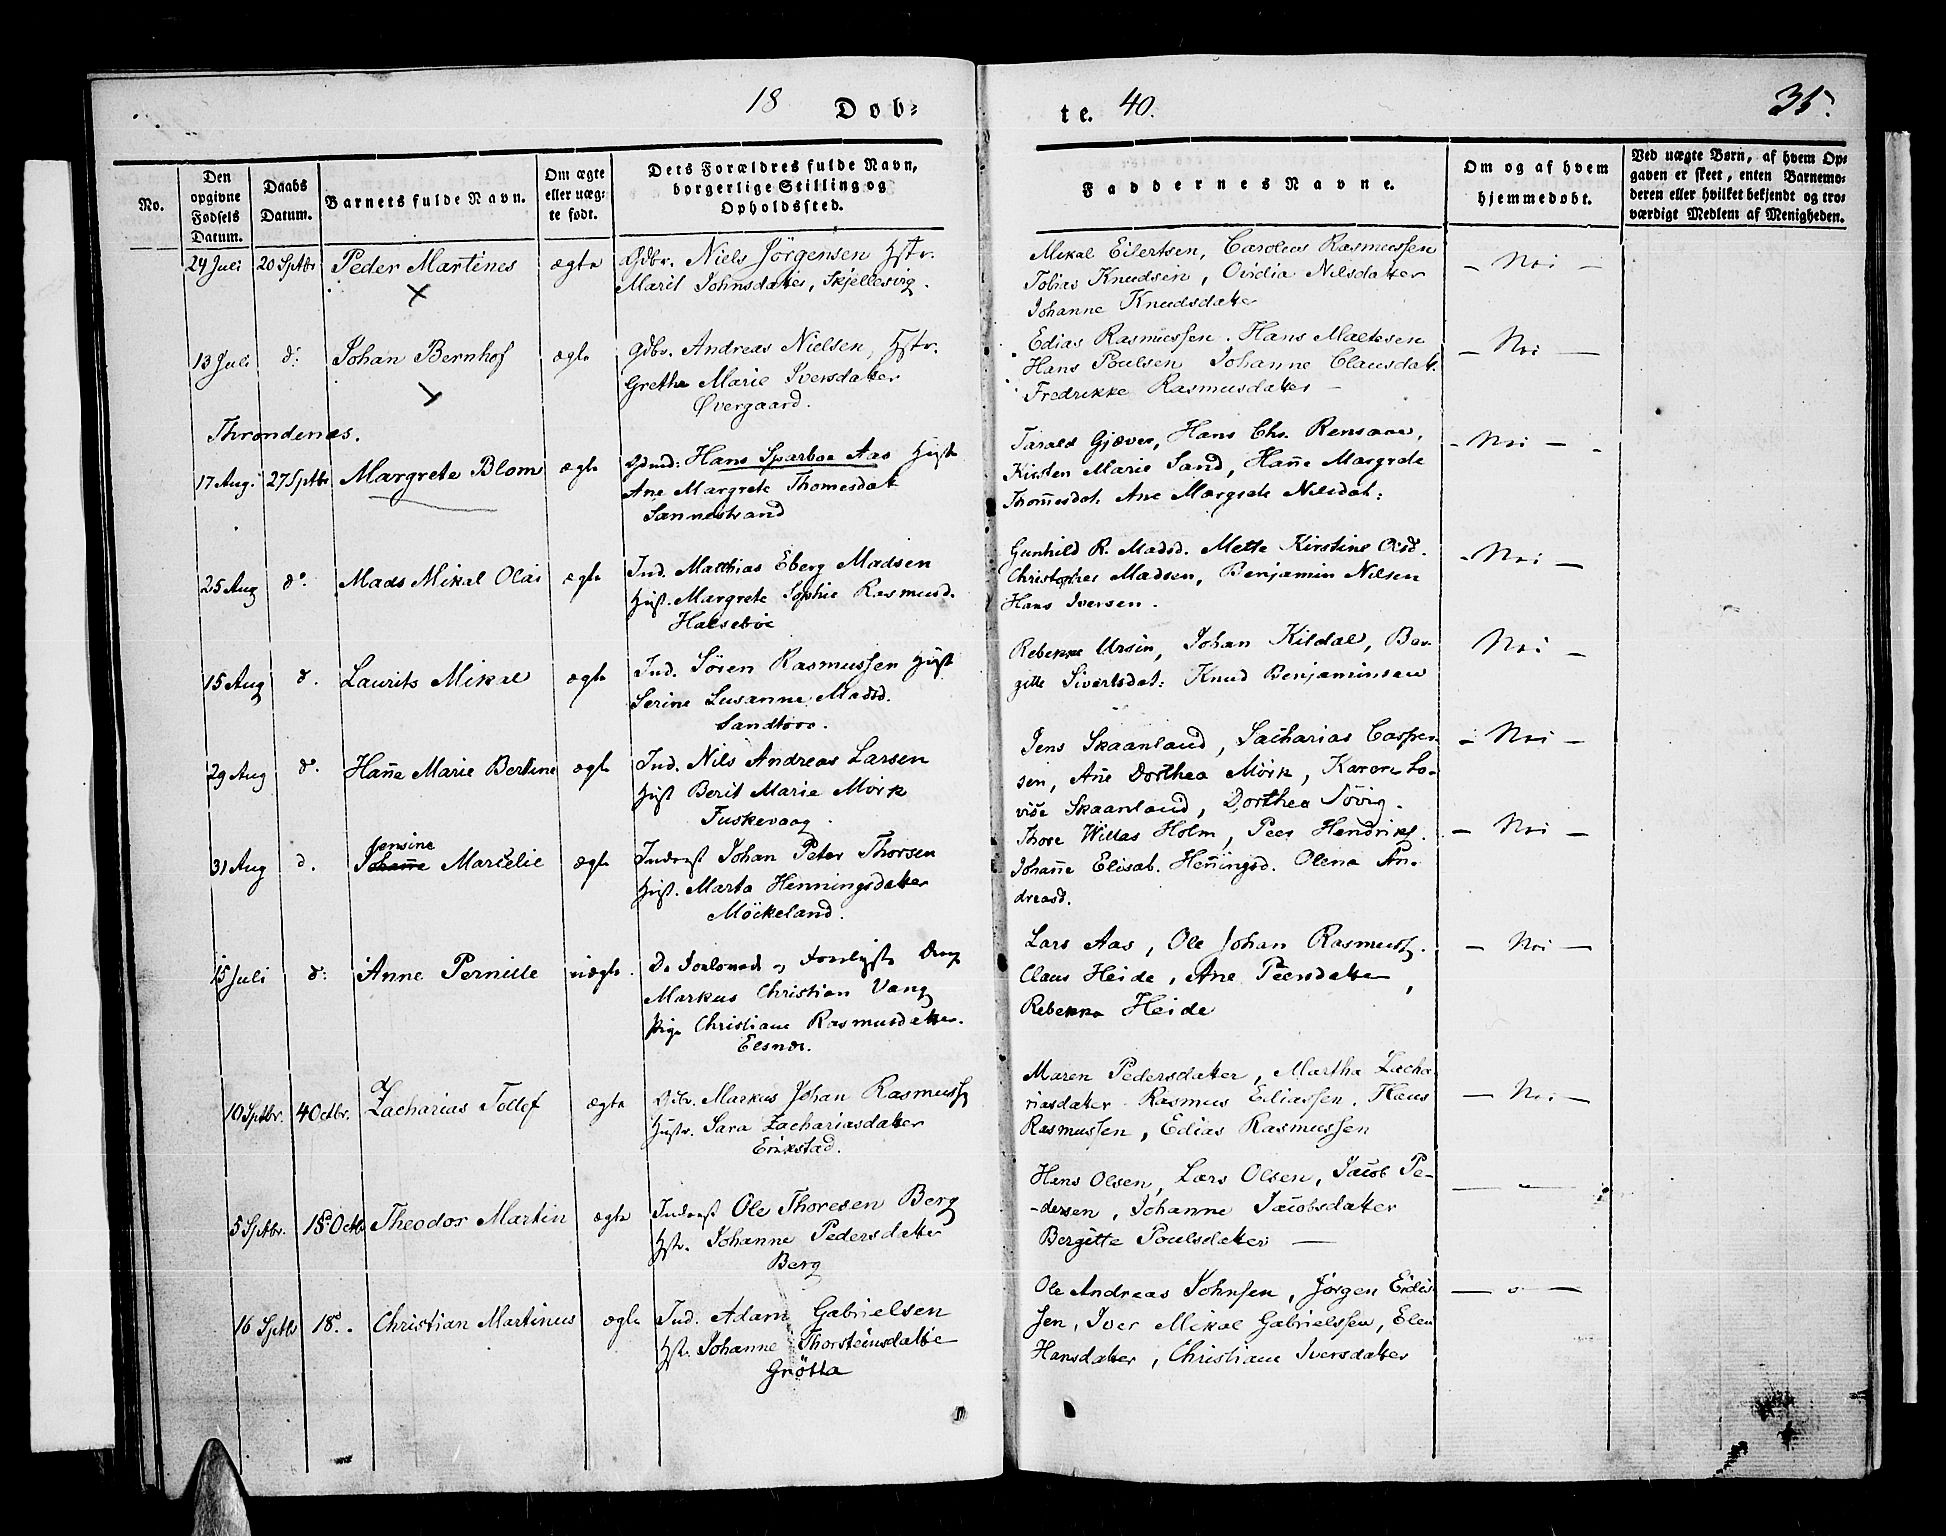 18 Dob=
te. 40.
35.
No.
Den opgivne Fødsels Datum.
Daabs Datum.
Barnets fulde Navn.
Om ægte eller uæg= te født.
Dets Forældres fulde Navn, borgerlige Stilling og Opholdssted.
Faddernes Navne.
Om og af hvem hjemmedøbt.
Ved uægte Børn, af hvem Op= gaven er skeet, enten Barnemo= deren eller hvilket bekjendt og tro= værdigt Medlem af Menigheden.
24 Juli 20 Sptbr Peder Martines ægte Gdbr. Niels Jörgensen Hstr.
Marit Johnsdatter, Skjellesvig.
Mikal Eilertsen, Carolus Rasmussen
Tobias Knudsen, Ovidia Nilsdatter
Johanne Knudsdatter
- Nei -
13 Juli d: Johan Bernhof ægte Gdbr. Andreas Nielsen, Hstr.
Grethe Marie Iversdatter
Øvergaard.
Edias Rasmussen. Hans Maltesen
Hans Poulsen Johanne Clausdat.
Fredrikke Rasmusdatter -
- Nei -
Throndenæs.
17 Aug. 27 Sptbr Margrete Blom ægte Hans Sparboe Aas Hust
Ane Margrete Thomesdat
Sannestrand
Tarald Gjæver, Hans Chr.
Kirsten Marie Sand, Hanne Margrete
Thomesdat. Ane Margrete Nilsdat:
- Nei -
25 Aug d°. Mads Mikal Olai ægte Ind. Matthias Eberg Madsen
Hust. Margrete Sophie Rasmusd.
Halsebøe
Gunhild R. Madsd. Mette Kirstine Olsd.
Christopher Madsen, Benjamin Nilsen
Hans Iversen.
- Nei -
15 Aug d. Laurits Mikal ægte Ind. Sören Rasmussen Hust
Serine Susanne Madsd.
Sandtorv.
Rebekka Ursin, Johan Kildal, Ber-
gitte Sivertsdat: Knud Benjaminsen
Nei -
29 Aug d°. Hanne Marie Bertine ægte Ind. Nils Andreas Larsen
Hust Berit Marie Mörk
Fuskevaag.
Jens Skaanland, Zacharias Casper-
sen, Ane Dorthea Mörk, Karen Lo-
vise Skaanland, Dorthea Sövig.
- Nei -
31 Aug d. Jensine Johanne Marcelie ægte Inderst Johan Peter Thorsen
Hust. Marta Henningsdatter
Möckeland.
Thore Willas Holm, Peer Hendriks.
Johanne Elisab. Henningsd. Olena An-
dreasd.
- Nei -
15 Juli d: Anne Pernille uægte.
Markus Christian Vang
Pige Christiane Rasmusdatter.
Elsnes.
Lars Aas, Ole Johan Rasmuss.
Claus Heide, Ane Peersdatter,
Rebekka Heide
- Nei -
10 Sptbr. 4 Octbr. Zacharias Tollef ægte Gdbr. Markus Johan Rasmuss
Hustr. Sara Zachariasdatter
Erikstad.
Maren Pedersdatter, Martha Zacha-
riasdatter Rasmus Eliassen. Hans
Rasmussen, Edias Rasmussen
- Nei -
5 Sptbr. 18 Octb Theodor Martin ægte Inderst Ole Thoresen Berg
Hstr. Johanne Pedersdatter
Berg
Hans Olsen, Lars Olsen, Jacob Pe-
-dersen, Johanne Jacobsdatter
Bergitte Poulsdatter -
- " -
16 Sptb 18d. Christian Martinus ægte Ind. Adam Gabrielsen
Hst. Johanne Thorsteinsdatter
Grötta
Ole Andreas Johnsen, Jörgen Edis-
sen, Iver Mikal Gabrielssen, Elen
Hansdatter, Christiane Iversdatter
- " -